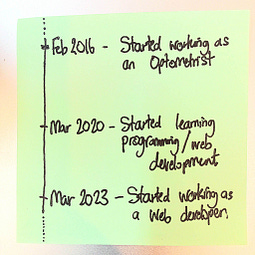 Feb 2016 - Started working as
an Optometrist
Mar 2020 - Started learning
programming/web
development
Mar 2023 - Started working as
a web developer.